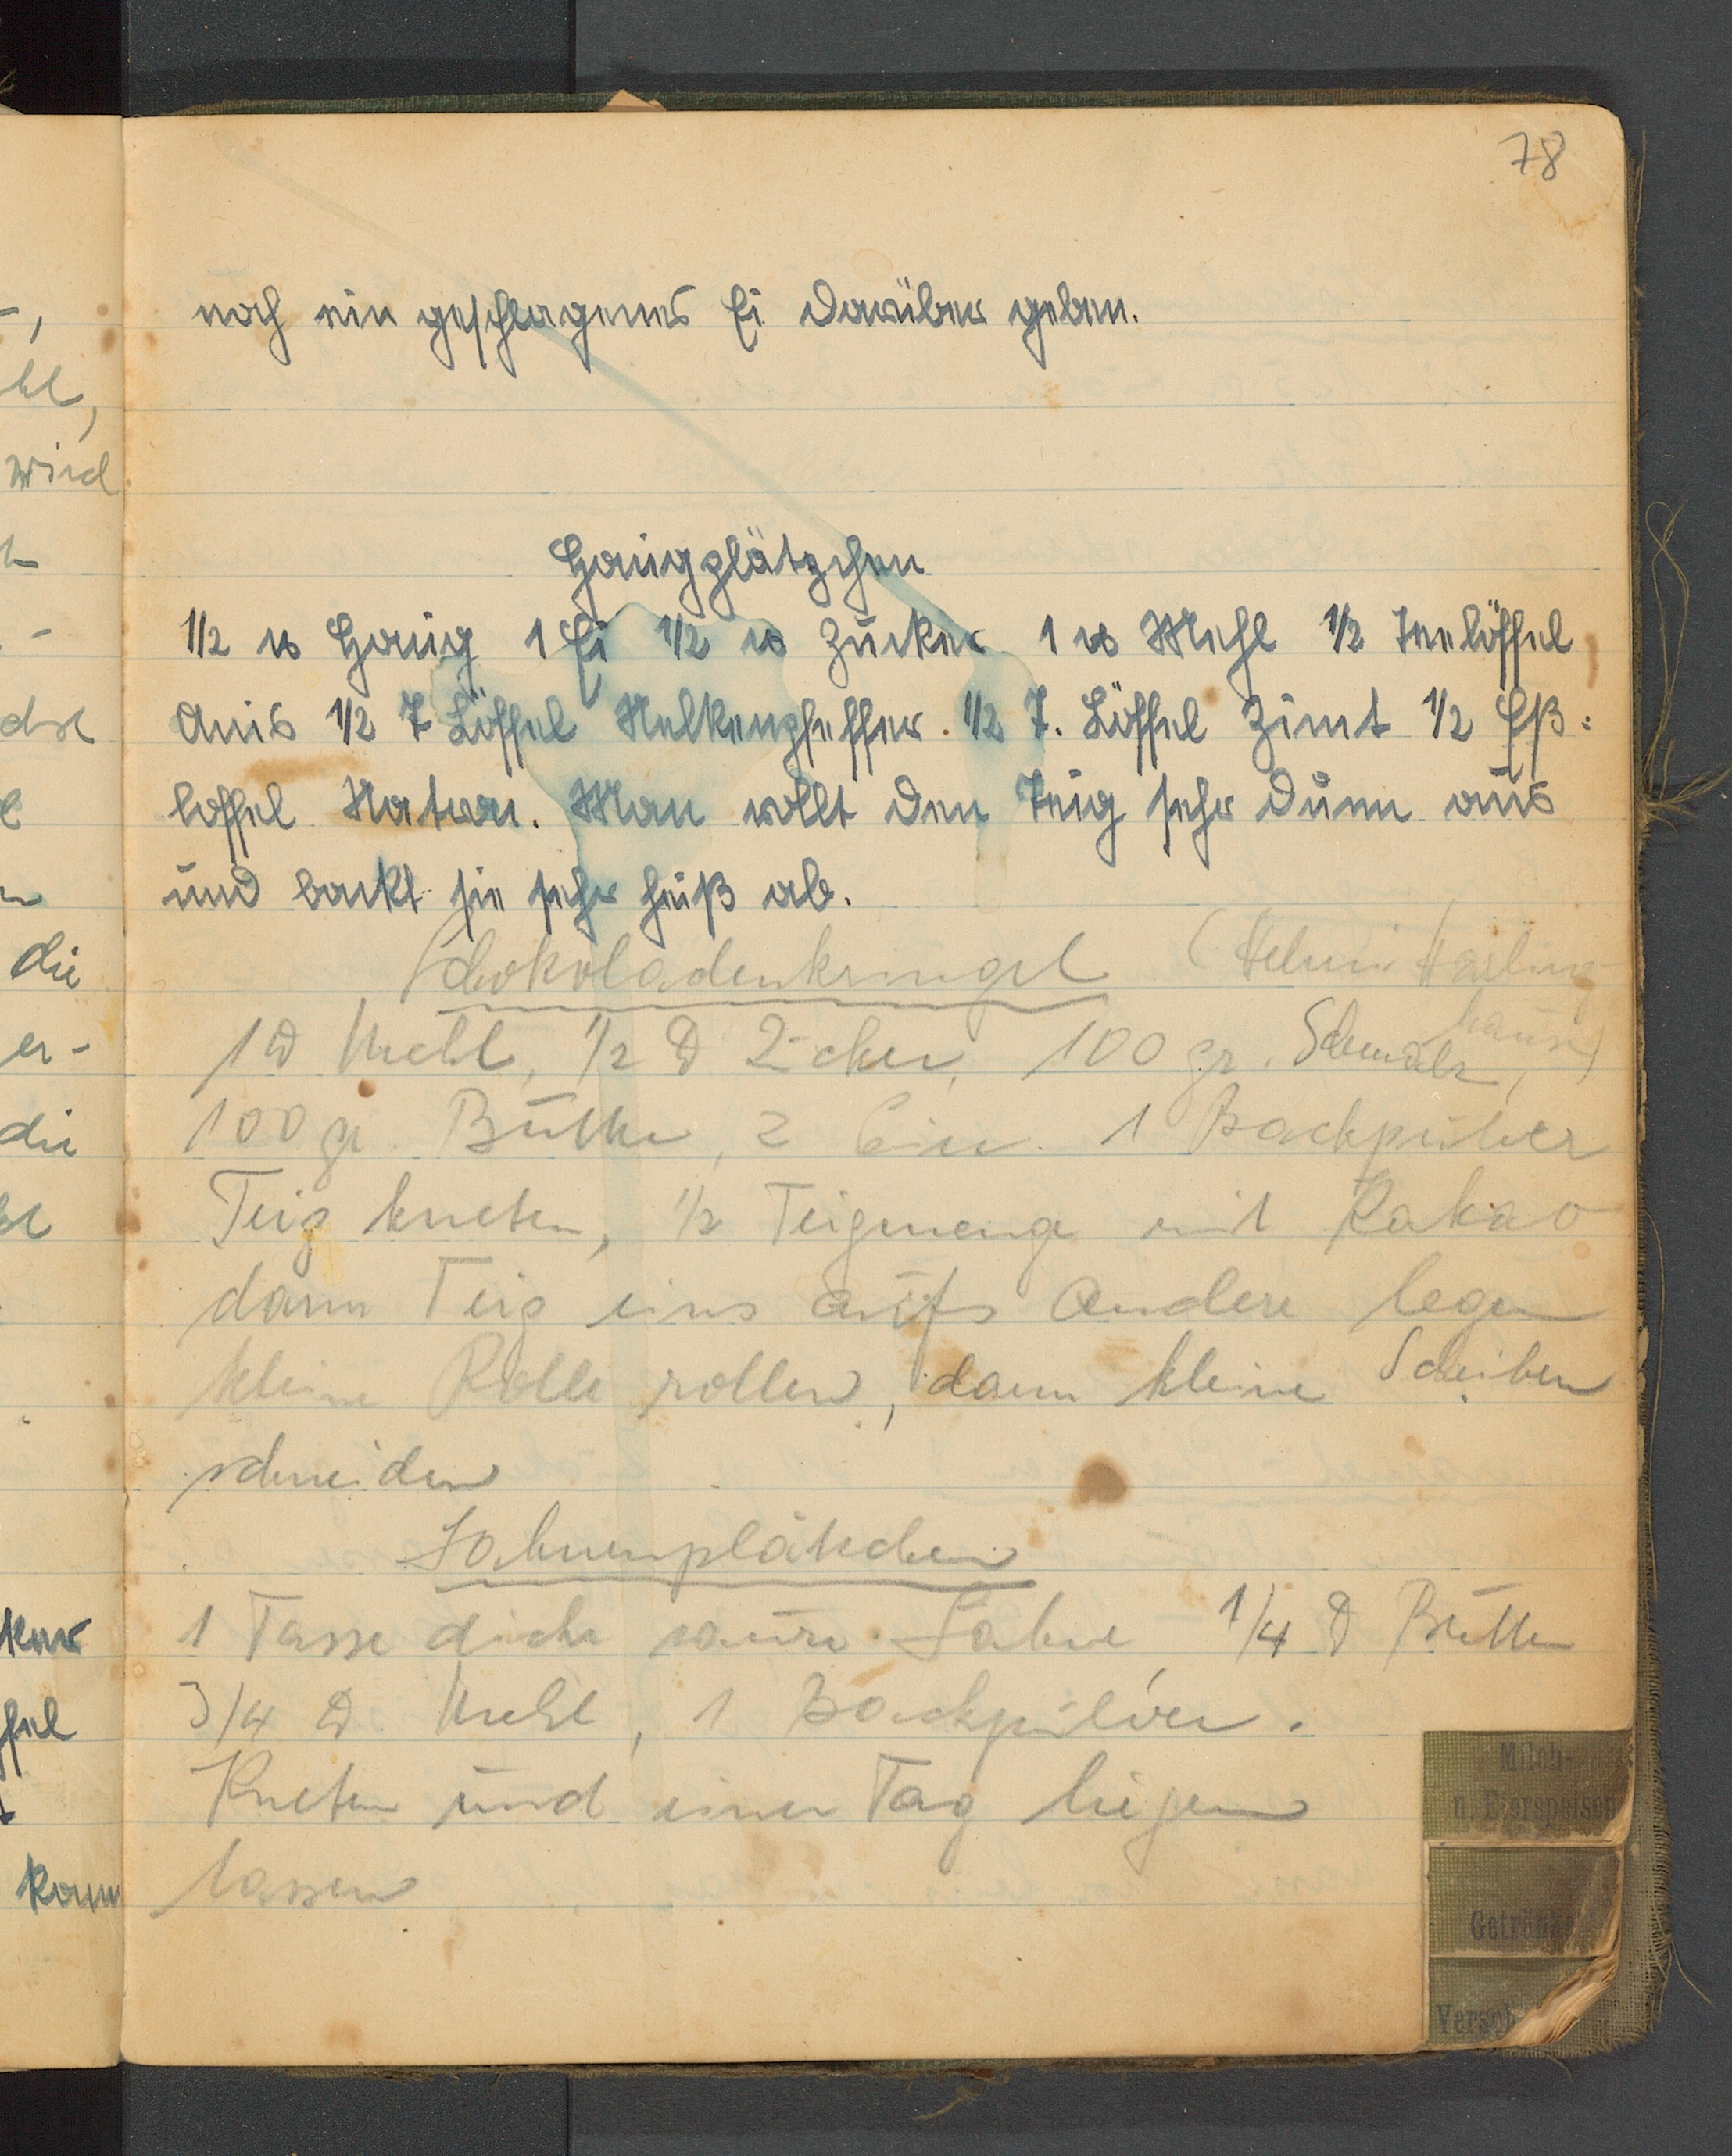 78
noch ein geschlagenes Ei darüber geben.
Honigplätzchen
1/2 ℔ Honig 1 Ei 1/2 ℔ Zucker 1 ℔ Mehl 1/2 Teelöffel
Anis 1/2 T Löffel Nelkenpfeffer. 1/2 T. Löffel Zimt 1/2 Eß:
loffel Natron. Man rollt den Teig sehr dünn aus
und backt sie sehr heiß ab.
Schokoladenkringel (Helmi Harling
hausen)
1 ℔ Mehl, 1/2 ℔ Zucker, 100 gr. Schmalz,
100 gr. Butter, 2 Eier. 1 Backpulver
Teig kneten, 1/2 Teigmenge mit Kakao
dann Teig eins aufs andere legen
kleine Rolle rollen, dann kleine Scheiben
schneiden
Sahnenplätzchen
1 Tasse dicke saure Sahne 1/4 ℔ Butter
3/4 ℔ Mehl, 1 Backpulver.
Kneten und einen Tag liegen
lassen
Milch-
u. Eierspeisen
Getränke
hl,
wird
die
er-
die